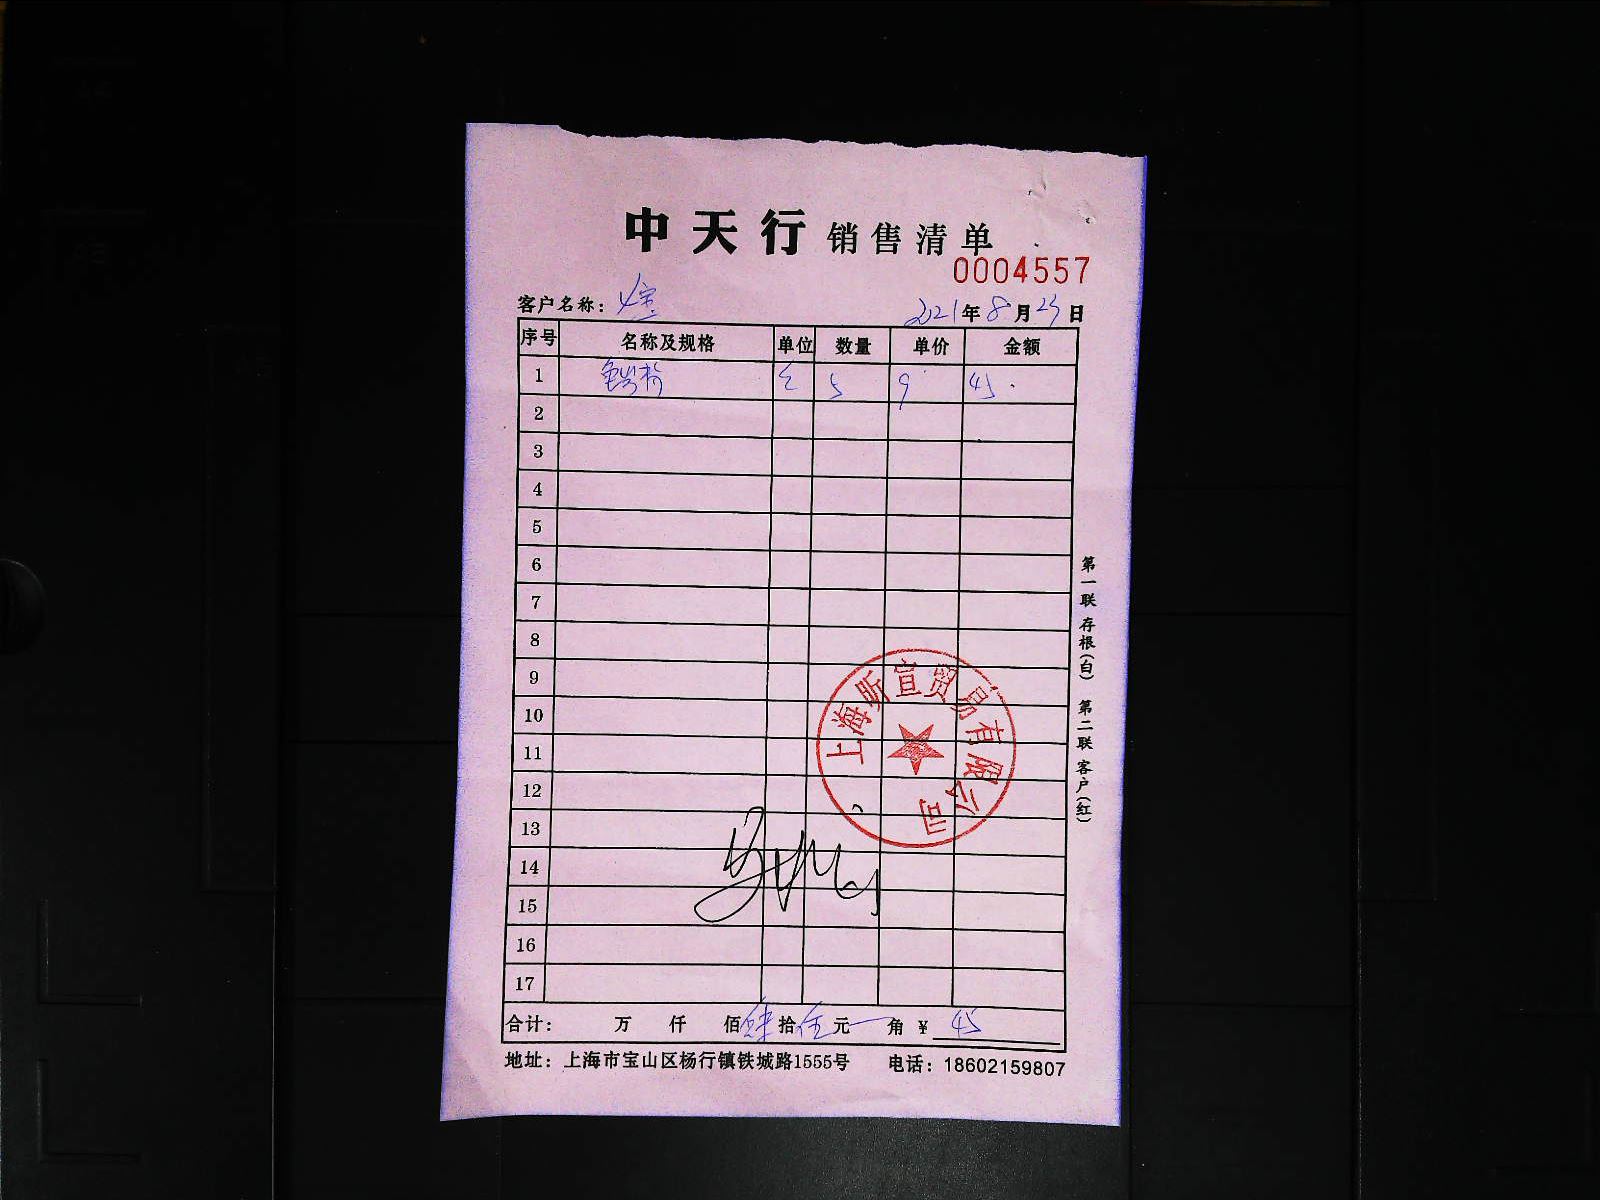 中天行 销售清单
0004557
客户名称：
2021年8月23日
序号 名称及规格 单位 数量 单价 金额
1 5 9 45
2
3
4
5
6
7
8
9
10
11
12
13
14
15
16
17
上海昕宣贸易有限公司
合计： 万 仟 佰 肆拾伍元 角 ¥ 45
地址：上海市宝山区杨行镇铁城路1555号 电话：18602159807
第一联 存根(白) 第二联 客户(红)